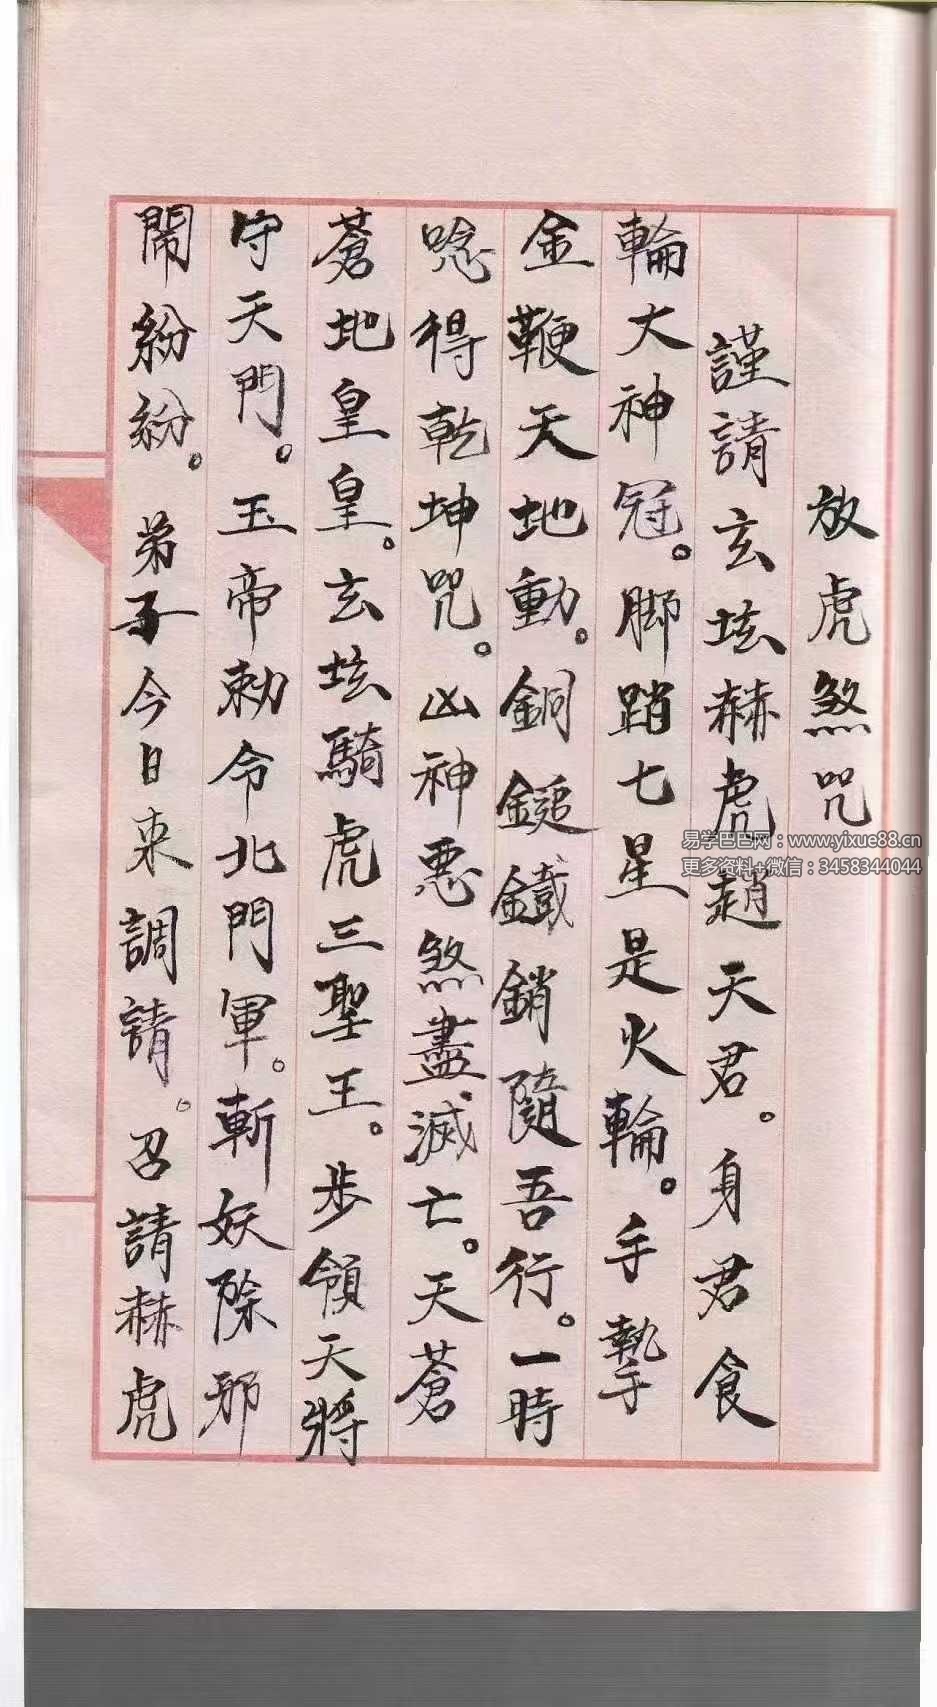 放虎煞咒
謹請玄坛赫虎趙天君。身君食
輪大神冠。脚踏七星是火輪。手執
金鞭天地動。銅鎚鐵鎖隨吾行。一時
唸得乾坤咒。凶神惡煞盡滅亡。天蒼
蒼地皇皇。玄坛騎虎三聖王。步領天將
守天門。玉帝勅令北門軍。斬妖除邪
鬧紛紛。弟子今日来調請。召請赫虎
易学巴巴网：www.yixue88.cn
更多资料+微信：3458344044